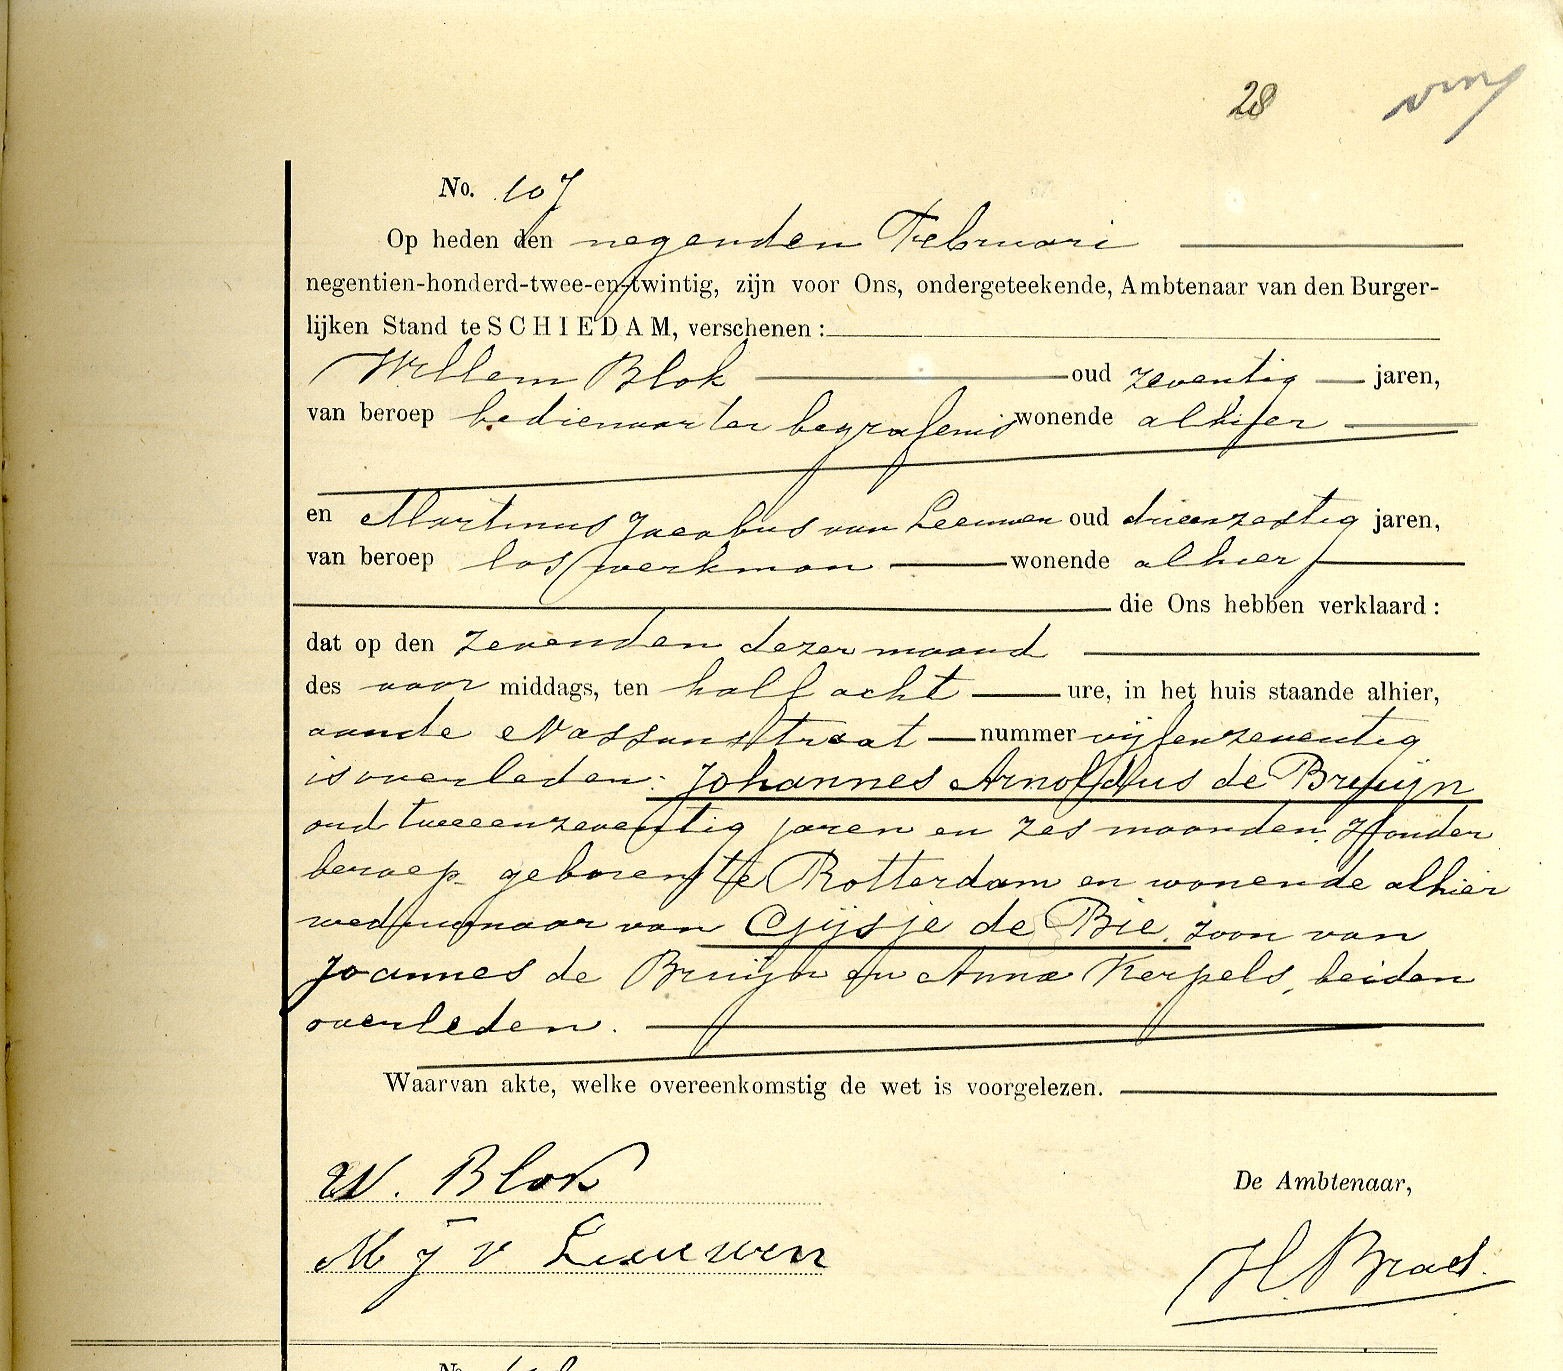 28
No. 107
Op heden den negenden Februari
negentien-honderd-twee-en-twintig, zijn voor Ons, ondergeteekende, Ambtenaar van den Burger-
lijken Stand te SCHIEDAM, verschenen :
Willem Blok oud zeventig jaren,
van beroep bedienaar ter begrafenis wonende alhier
en Martinus Jacobus van Leeuwen oud drieenzestig jaren,
van beroep los werkman wonende alhier
die Ons hebben verklaard :
dat op den zevenden dezer maand
des voor middags, ten half acht ure, in het huis staande alhier,
aan de Nassaustraat nummer vijfenzeventig
is overleden: Johannes Arnoldus de Bruijn
oud tweeenzeventig jaren en zes maanden, zonder
beroep geboren te Rotterdam en wonende alhier
weduwnaar van Gijsje de Bie, zoon van
Joannes de Bruijn en Anna Kerpels, beiden
overleden.
Waarvan akte, welke overeenkomstig de wet is voorgelezen.
W. Blok
De Ambtenaar,
M J v Leeuwen
No.